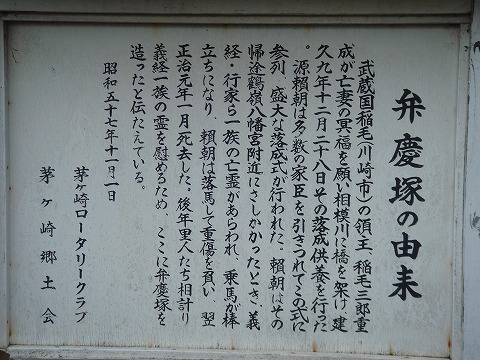 弁慶塚の由来
武蔵国稲毛(川崎市)の領主、稲毛三郎重
成が亡妻の冥福を願い相模川に橋を架け、建
久九年十二月二十八日その落成供養を行った
。源頼朝は多数の家臣を引きつれてこの式に
参列、盛大な落成式が行われた。頼朝はその
帰途鶴嶺八幡宮附近にさしかかったとき、義
経・行家ら一族の亡霊があらわれ、乗馬が棒
立ちになり、頼朝は落馬して重傷を負い、翌
正治元年一月死去した。後年里人たち相計り
義経一族の霊を慰めるため、ここに弁慶塚を
造ったと伝えている。
昭和五十七年十一月一日
茅ヶ崎ロータリークラブ
茅ヶ崎郷土会